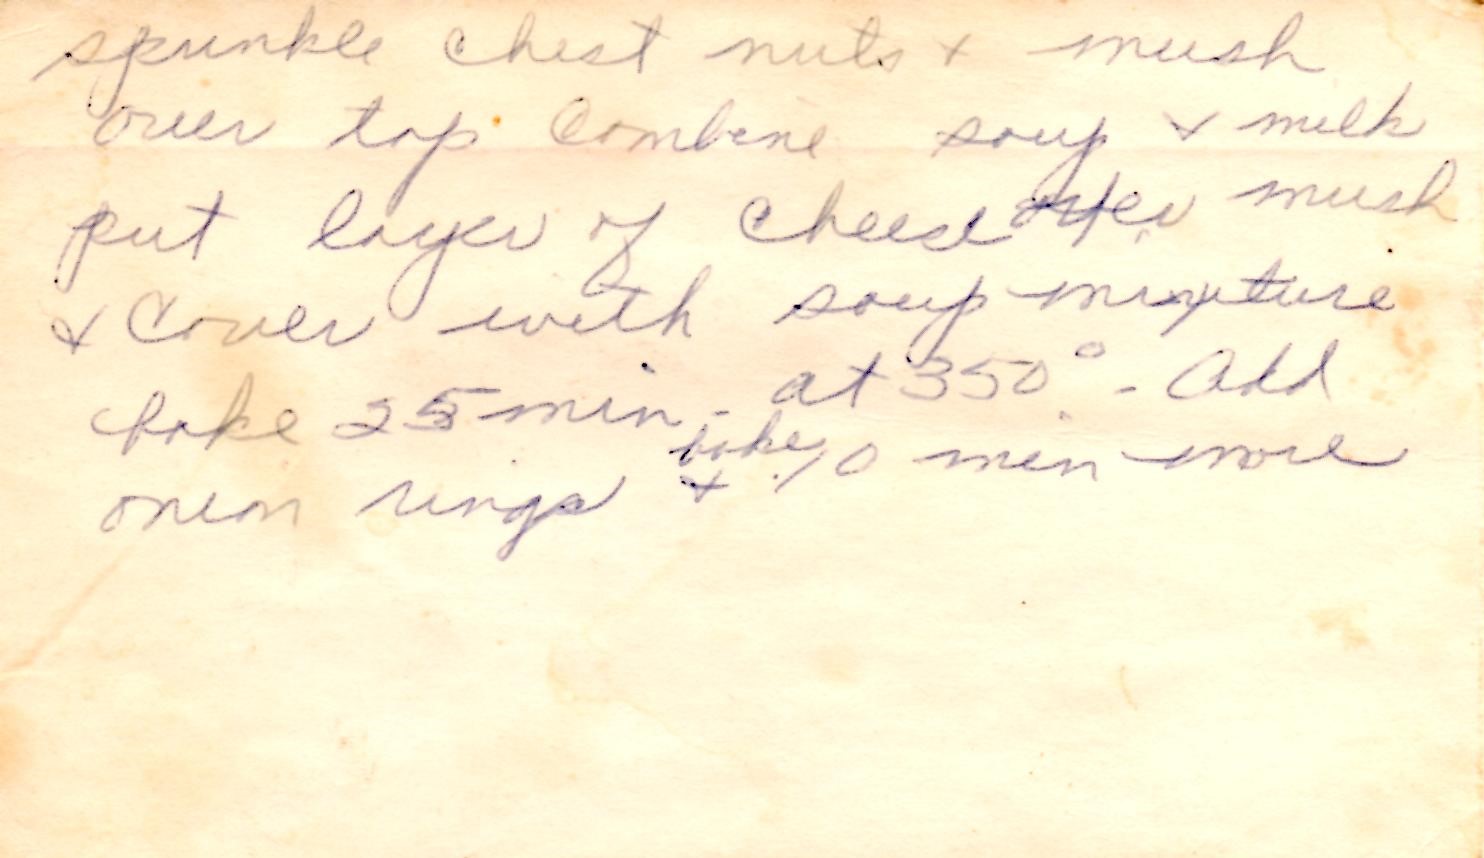 sprinkle chest nuts & mush
over top. Combine soup & milk
put layer of cheese over mush
& Cover with soup mixture
bake 25 min - at 350° - Add
onion rings & bake 10 min more